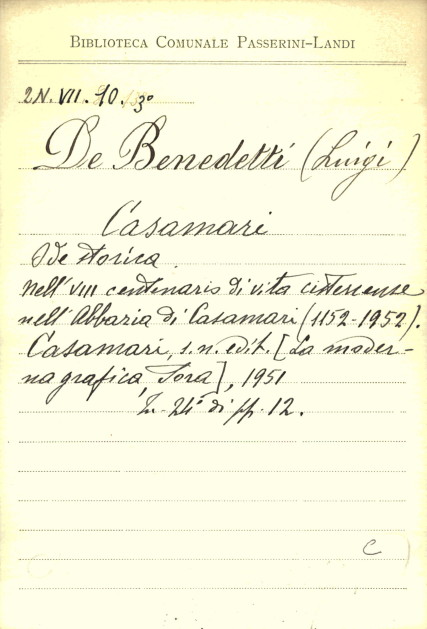 BIBLIOTECA COMUNALE PASSERINI-LANDI
2N. VII. 10. 3º
De Benedetti (Luigi)
Casamari
Ode storica
nell'VIII centenario di vita cistercense
nell'Abbazia di Casamari (1152-1952).
Casamari, s. n. edit. [La moder-
na grafica, Sora], 1951
In-24º di pp. 12.
C